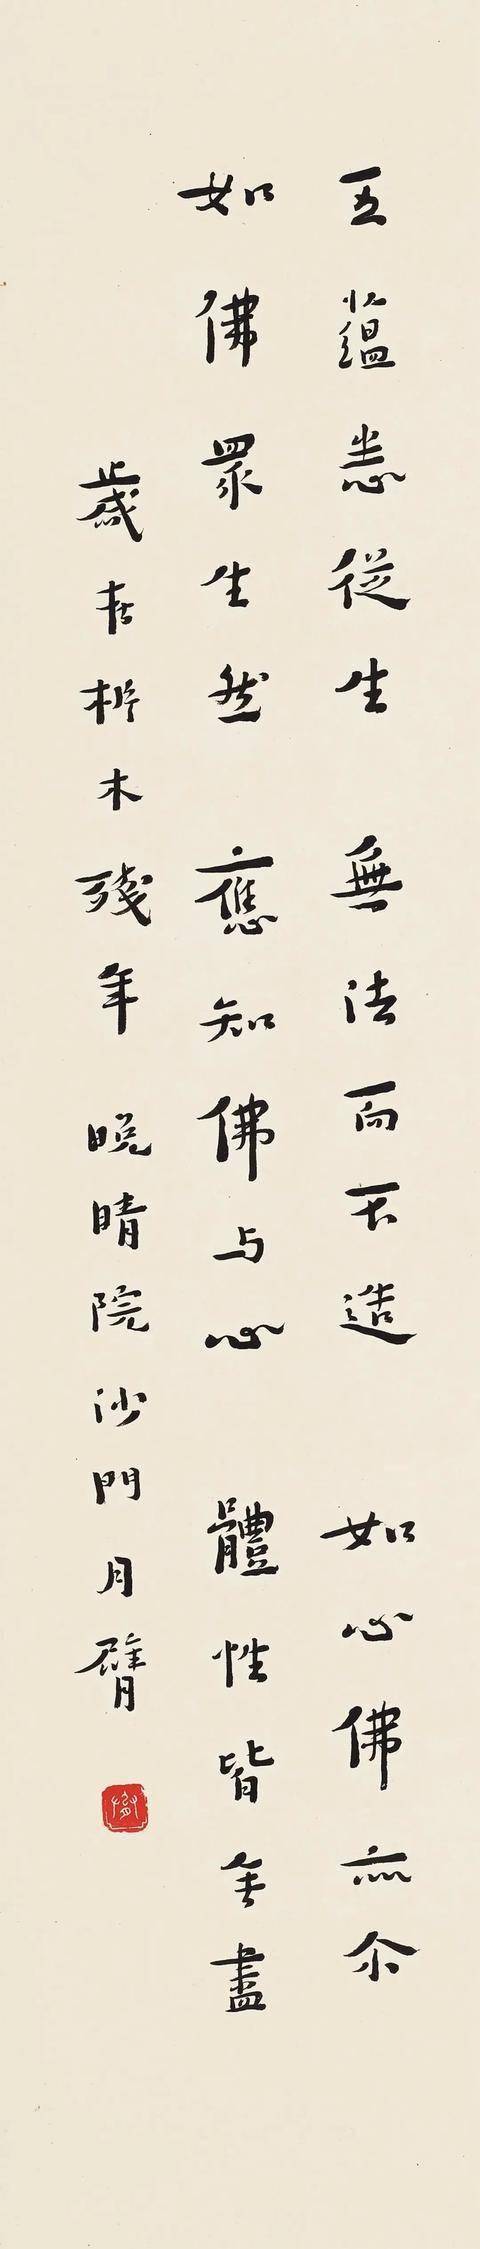 五蕴悉從生 無法而不造 如心佛亦尒
如佛眾生然 應知佛与心 體性皆無盡
歲在析木殘年 晚晴院沙門月臂